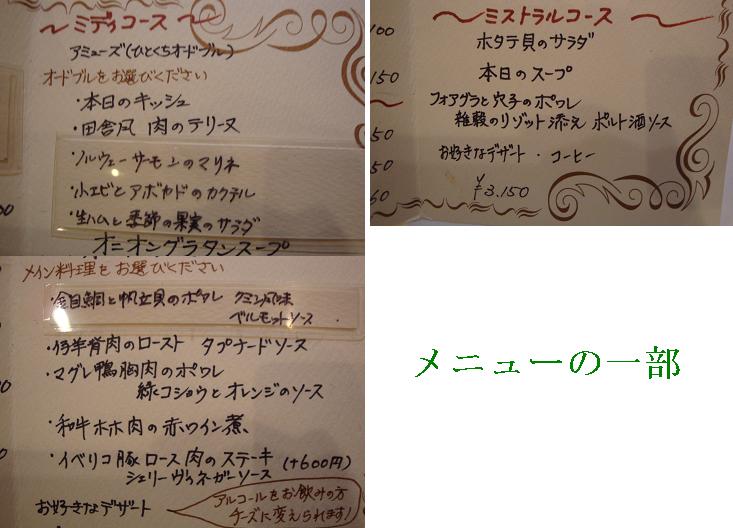 ミディコース
アミューズ(ひとくちオードブル)
オードブルをお選びください
・本日のキッシュ
・田舎風 肉のテリーヌ
・ノルウェーサーモンのマリネ
・小エビとアボカドのカクテル
・生ハムと季節の果実のサラダ
オニオングラタンスープ
メイン料理をお選びください
・金目鯛と帆立貝のポワレ クミン風味
ベルモットソース
・仔羊背肉のロースト タプナードソース
・マグレ鴨胸肉のポワレ
緑コショウとオレンジのソース
・和牛ホホ肉の赤ワイン煮
・イベリコ豚ロース肉のステーキ (+600円)
シェリーヴィネガーソース
お好きなデザート
アルコールをお飲みの方
チーズに変えられます!
ミストラルコース
ホタテ貝のサラダ
本日のスープ
フォアグラと穴子のポワレ
雑穀のリゾット添え ポルト酒ソース
お好きなデザート・コーヒー
¥3.150
100
150
50
50
メニューの一部